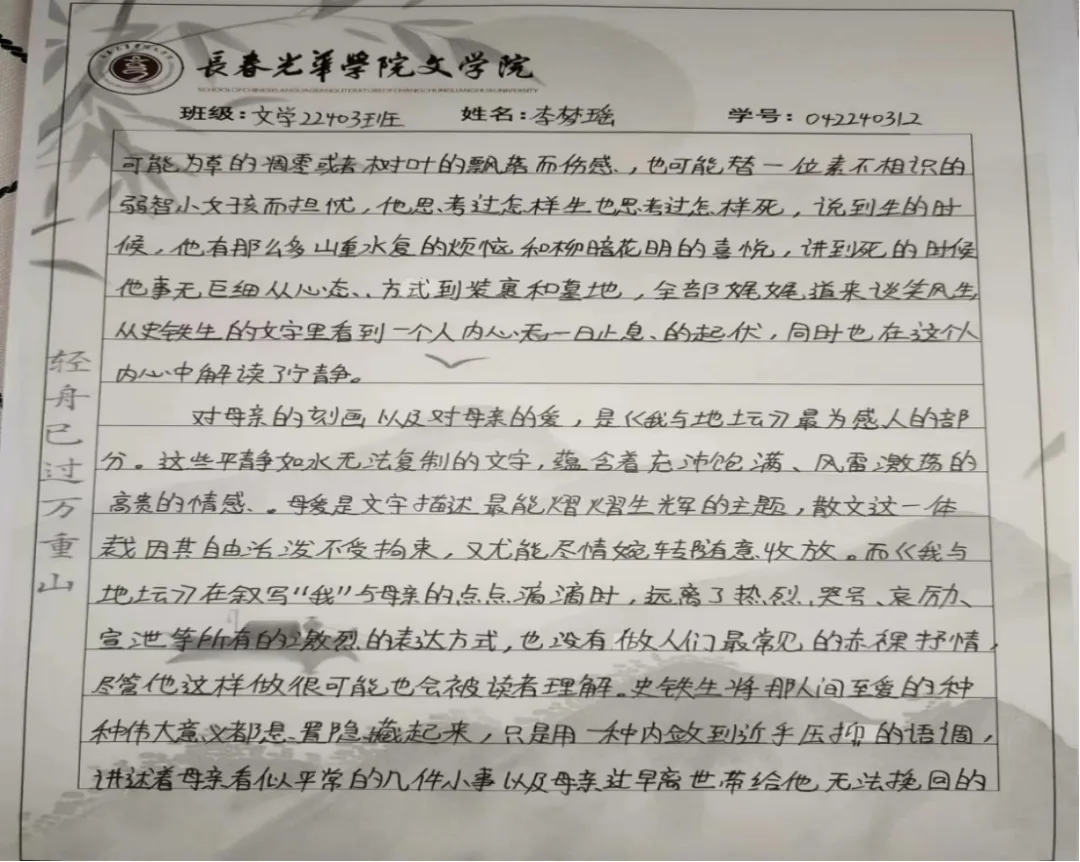 長春光華學院文学院
SCHOOL OF CHINESE LANGUAGE AND LITERATURE OF CHANGCHUN GUANGHUA UNIVERSITY
班级：文学22403班 姓名：李梦瑶 学号：042240312
可能为草的凋零或者树叶的飘落而伤感，也可能替一位素不相识的
弱智小女孩而担忧，他思考过怎样生也思考过怎样死，说到生的时
候，他有那么多山重水复的烦恼和柳暗花明的喜悦，讲到死的时候
他事无巨细从心态、方式到装裹和墓地，全部娓娓道来谈笑风生，
从史铁生的文字里看到一个人内心无一日止息的起伏，同时也在这个人
内心中解读了宁静。
对母亲的刻画以及对母亲的爱，是《我与地坛》最为感人的部
分。这些平静如水无法复制的文字，蕴含着充沛饱满、风雷激荡的
高贵的情感。母爱是文字描述最能熠熠生辉的主题，散文这一体
裁因其自由活泼不受拘束，又尤能尽情婉转随意收放。而《我与
地坛》在叙写“我”与母亲的点点滴滴时，远离了热烈、哭号、哀励、
宣泄等所有的激烈的表达方式，也没有做人们最常见的赤裸抒情，
尽管他这样做很可能也会被读者理解。史铁生将那人间至爱的种
种伟大意义都悬置隐藏起来，只是用一种内敛到近乎压抑的语调，
讲述着母亲看似平常的几件小事以及母亲过早离世带给他无法挽回的
轻舟已过万重山